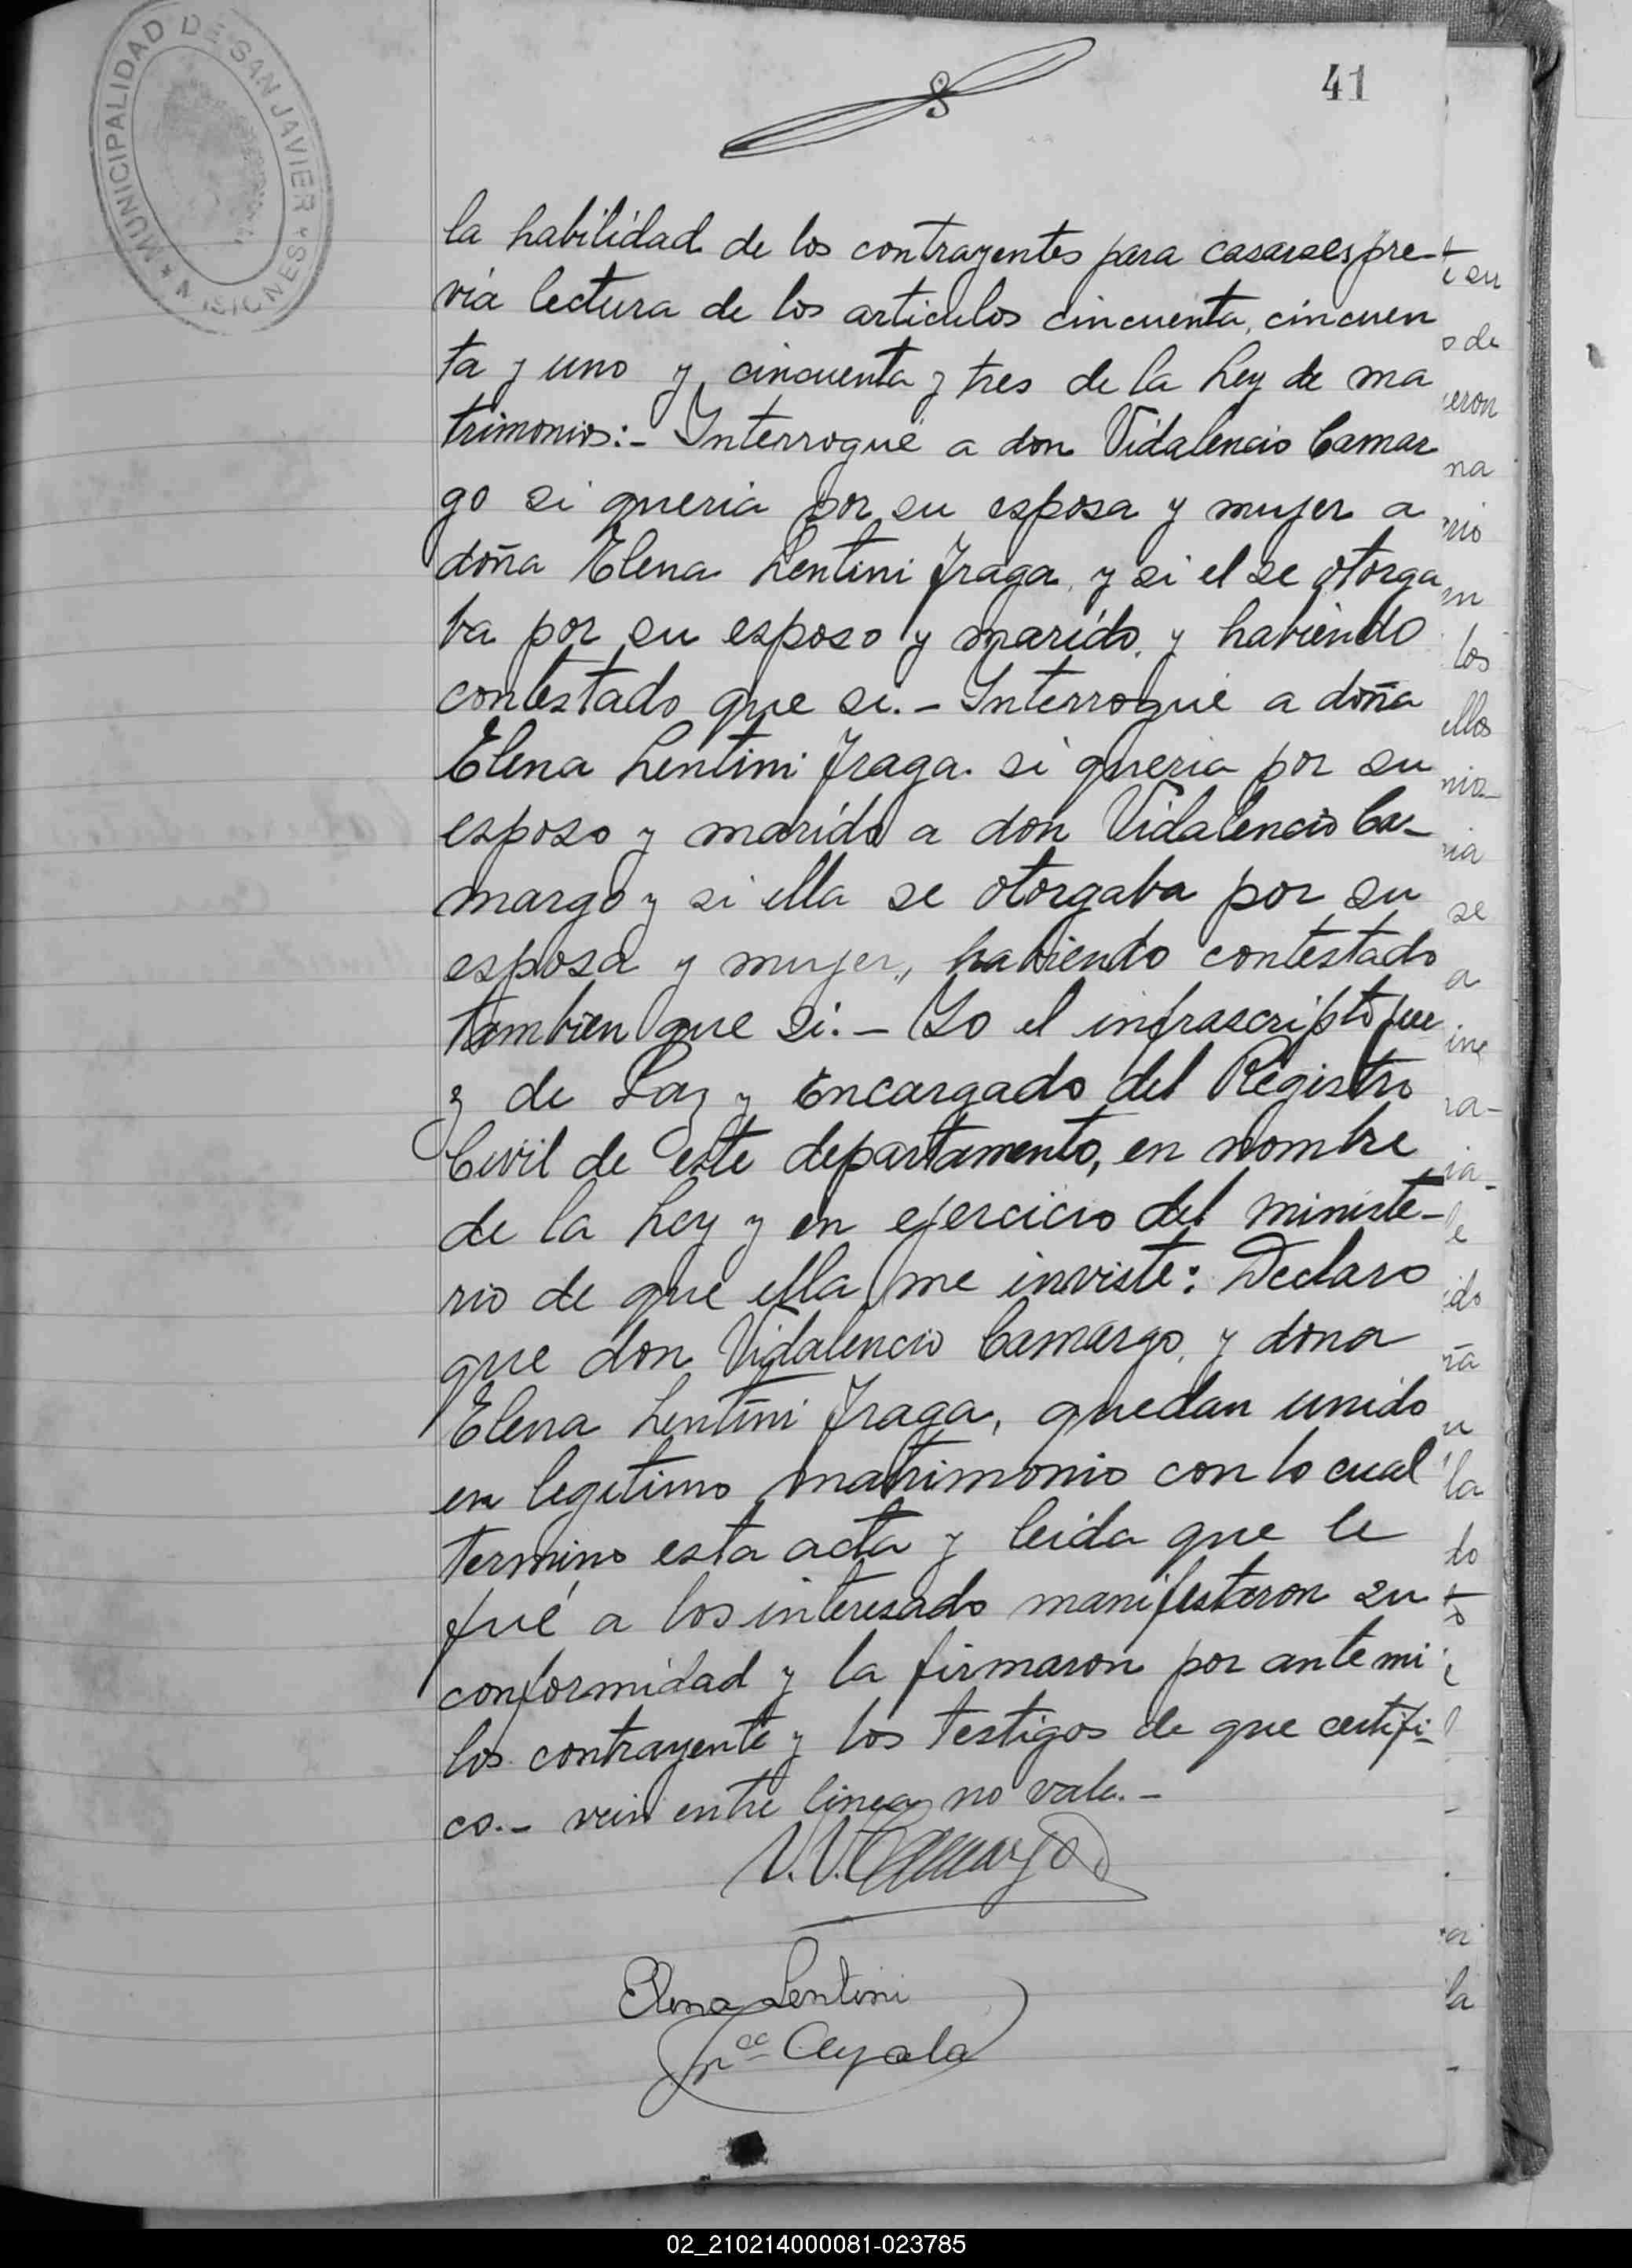 MUNICIPALIDAD DE SAN JAVIER * MISIONES *
41
la habilidad de los contrayentes para casarse, pre-
via lectura de los articulos cincuenta, cincuen
ta y uno y cincuenta y tres de la Ley de ma
trimonios:- Interrogué a don Vidalencio Camar
go si queria por su esposa y mujer a
doña Elena Lentini Fraga, y si el se otorga
ba por su esposo y marido, y habiendo
contestado que si.- Interrogué a doña
Elena Lentini Fraga. si queria por su
esposo y marido a don Vidalencio Ca-
margo y si ella se otorgaba por su
esposa y mujer, habiendo contestado
tambien que si.- Yo el infrascripto jue
z de Paz y Encargado del Registro
Civil de este departamento, en nombre
de la Ley y en ejercicio del ministe-
rio de que ella me inviste: Declaro
que don Vidalencio Camargo, y dona
Elena Lentini Fraga, quedan unido
en legitimo matrimonio con lo cual
termino esta acta y leida que le
fué a los interesado manifestaron su
conformidad y la firmaron por ante mi
los contrayente y los testigos de que certifi-
co.- entre linea no vale.-
V. V. Camargo
Elena Lentini
Ayala
02_210214000081-023785